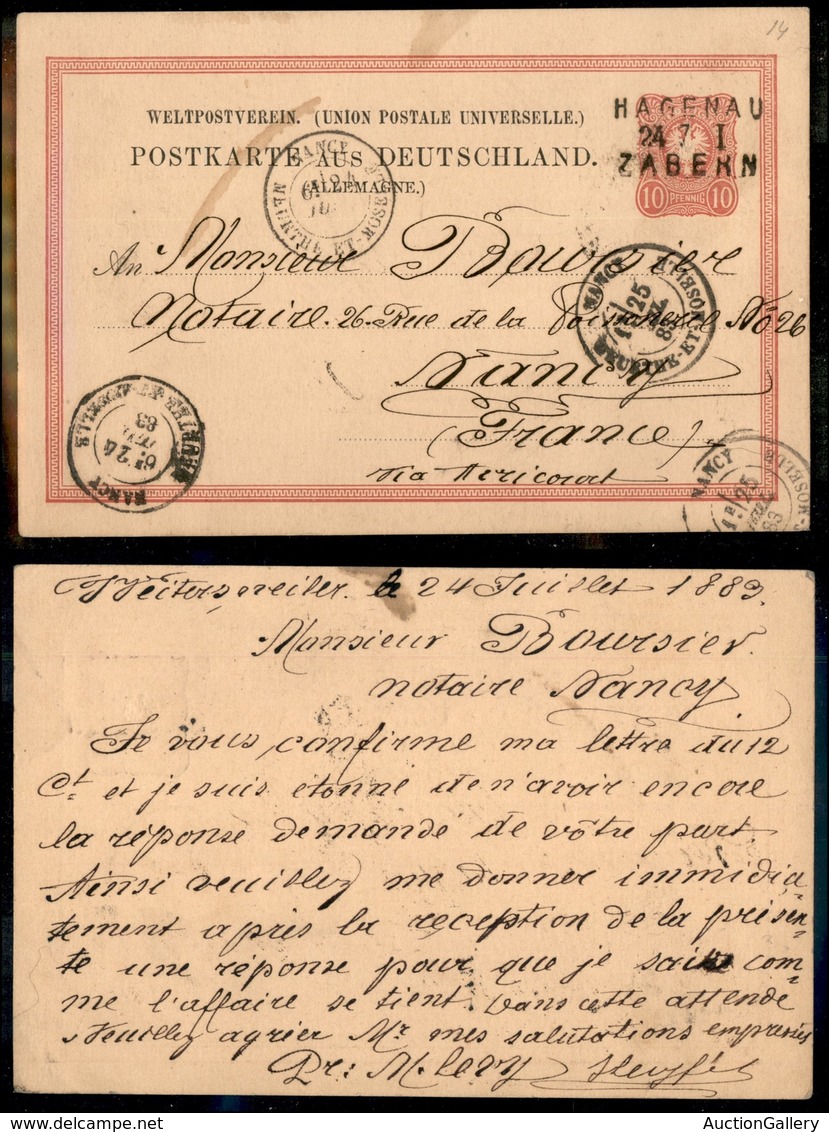 14
WELTPOSTVEREIN. (UNION POSTALE UNIVERSELLE.)
POSTKARTE AUS DEUTSCHLAND.
(ALLEMAGNE.)
HAGENAU
24 7 I
ZABERN
10 PFENNIG 10
NANCY
6E 24
MEURTHE-ET-MOSELLE
An Monsieur Boursier
Notaire. 26. Rue de la No 26
Nancy
(France)
via Avricourt
NANCY
1E 25
83
MEURTHE-ET-MOSELLE
MEURTHE-ET-MOSELLE
6E 24
83
NANCY
NANCY
1E 25
83
MOSELLE
Weitersweiler. le 24 Juillet 1883.
Monsieur Boursier.
notaire Nancy
Je vous confirme ma lettre du 12
Ct et je suis etonne de n'avoir encore
la réponse demandé de vôtre part
Ainsi veuillez me donner immidia-
tement après la reception de la présen-
te une réponse pour que je sais com-
me l'affaire se tient. Dans cette attende
Veuillez agrier Mr mes salutations empresés
Pr: M. Levy
AuctionGallery